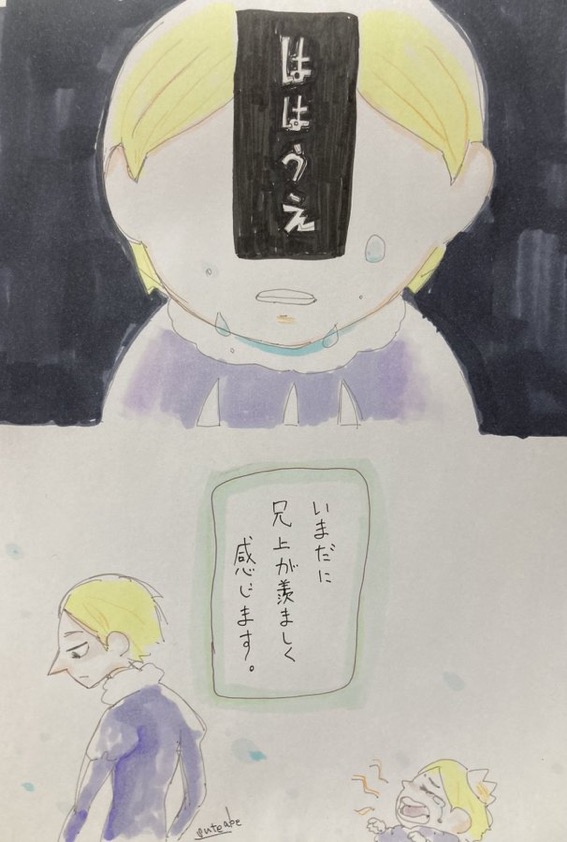 ははうえ
いまだに
兄上が羨ましく
感じます。